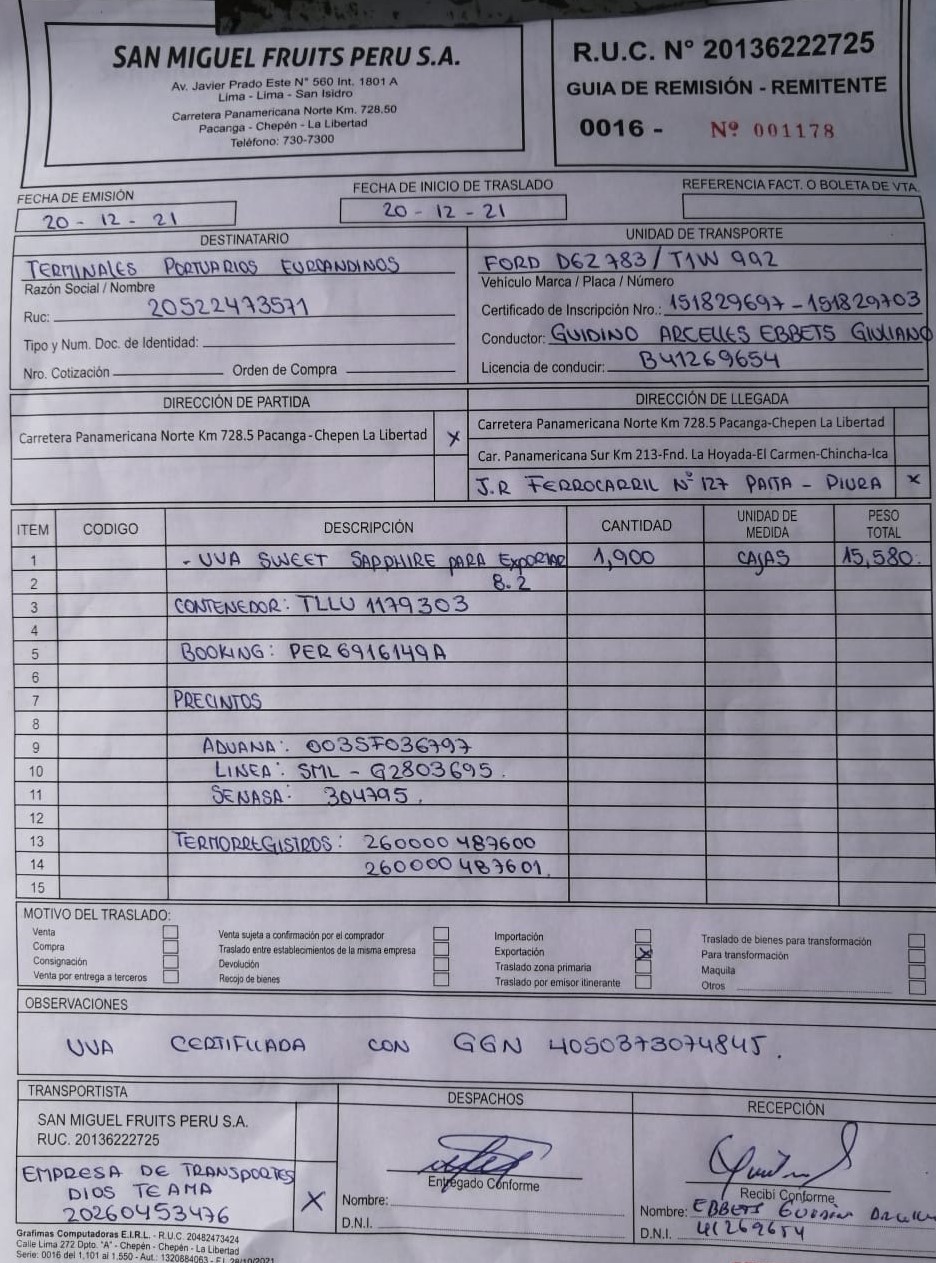 SAN MIGUEL FRUITS PERU S.A.
Av. Javier Prado Este N° 560 Int. 1801 A
Lima - Lima - San Isidro
Carretera Panamericana Norte Km. 728.50
Pacanga - Chepén - La Libertad
Teléfono: 730-7300
R.U.C. N° 20136222725
GUIA DE REMISIÓN - REMITENTE
0016 - Nº 001178
FECHA DE EMISIÓN
20 - 12 - 21
FECHA DE INICIO DE TRASLADO
20 - 12 - 21
REFERENCIA FACT. O BOLETA DE VTA.
DESTINATARIO
TERMINALES PORTUARIOS EUROANDINOS
Razón Social / Nombre
Ruc: 20522473571
Tipo y Num. Doc. de Identidad:
Nro. Cotización Orden de Compra
UNIDAD DE TRANSPORTE
FORD D6Z 783 / T1W 992
Vehiculo Marca / Placa / Número
Certificado de Inscripción Nro.: 151829697 - 151829703
Conductor: GUIDINO ARCELLES EBBETS GIULIANO
Licencia de conducir: B41269654
DIRECCIÓN DE PARTIDA
Carretera Panamericana Norte Km 728.5 Pacanga-Chepen La Libertad X
DIRECCIÓN DE LLEGADA
Carretera Panamericana Norte Km 728.5 Pacanga-Chepen La Libertad
Car. Panamericana Sur Km 213-Fnd. La Hoyada-El Carmen-Chincha-Ica
J.R FERROCARRIL Nº 127 PAITA - PIURA X
ITEM CODIGO DESCRIPCIÓN CANTIDAD UNIDAD DE MEDIDA PESO TOTAL
1 - UVA SWEET SAPPHIRE PARA EXPORTAR 1,900 CAJAS 15,580.
2 8.2
3 CONTENEDOR: TLLU 1179303
4
5 BOOKING: PER6916149A
6
7 PRECINTOS
8
9 ADUANA: 003SF036797
10 LINEA: SML - G2803695.
11 SENASA: 304795.
12
13 TERMORREGISTROS: 260000487600
14 260000487601.
15
MOTIVO DEL TRASLADO:
Venta
Compra
Consignación
Venta por entrega a terceros
Venta sujeta a confirmación por el comprador
Traslado entre establecimientos de la misma empresa
Devolución
Recojo de bienes
Importación
Exportación X
Traslado zona primaria
Traslado por emisor itinerante
Traslado de bienes para transformación
Para transformación
Maquila
Otros
OBSERVACIONES
UVA CERTIFICADA CON GGN 4050373074845.
TRANSPORTISTA
SAN MIGUEL FRUITS PERU S.A.
RUC. 20136222725
EMPRESA DE TRANSPORTES
DIOS TE AMA X
20260453476
DESPACHOS
Entregado Conforme
Nombre:
D.N.I.
RECEPCIÓN
Recibi Conforme
Nombre: EBBETS GUIDINO
D.N.I. 41269654
Grafimas Computadoras E.I.R.L. - R.U.C. 20482473424
Calle Lima 272 Dpto. "A" - Chepén - Chepén - La Libertad
Serie: 0016 del 1,101 al 1,550 - Aut.: 1320884063 - F.I. 28/10/2021